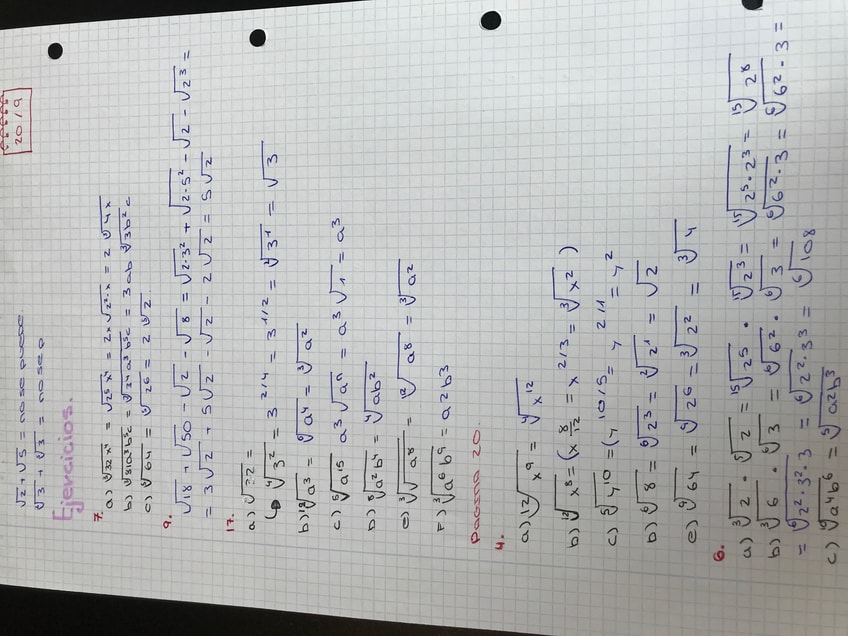 2019
√2 + √5 = no se puede.
√3 + √3 = no se p
Ejercicios.
7.
a) √32x⁴ = √2⁵x⁴ = 2x√2²·x = 2√4x
b) √81a³b⁵c = √3⁴a³b⁵c = 3ab ∛3b²c
c) ⁵√64 = ⁵√2⁶ = 2 ⁵√2
9.
√18 + √50 - √2 - √8 = √2·3² + √2·5² - √2 - √2³ =
= 3√2 + 5√2 - √2 - 2√2 = 5√2
17.
a)
↳ ⁴√3² = 3^2/4 = 3^1/2 = ²√3¹ = √3
b) ¹²√a³ = ⁶√a⁴ = ³√a²
c) ⁵√a¹⁵ a³√aⁿ = a³√1 = a³
D) ⁸√a²b⁴ = ⁴√ab²
e) ³√√a⁸ = ¹²√a⁸ = ³√a²
F) ³√a⁶b⁹ = a²b³
Pagina 20.
4.
a) 12√x⁹ = ⁴√x¹²
b) ¹²√x⁸ = (x^8/12 = x^2/3 = ³√x²)
c) ⁵√4¹⁰ = (7^10/5 = 7^2/1 = 7²
D) ⁶√8 = ⁶√2³ = ²√2¹ = √2
e) ⁹√64 = ⁹√2⁶ = ³√2² = ³√4
6.
a) ³√2 · ⁵√2 = ¹⁵√2⁵ · ¹⁵√2³ = ¹⁵√2⁵·2³ = ¹⁵√2⁸
b) ³√6 · ⁶√3 = ⁶√6² · ⁶√3 = ⁶√6²·3 = ⁶√6²·3 =
= ⁶√2²·3²·3 = ⁶√2²·3³ = ⁶√108
c) ¹⁰√a⁴b⁶ = ⁵√a²b³